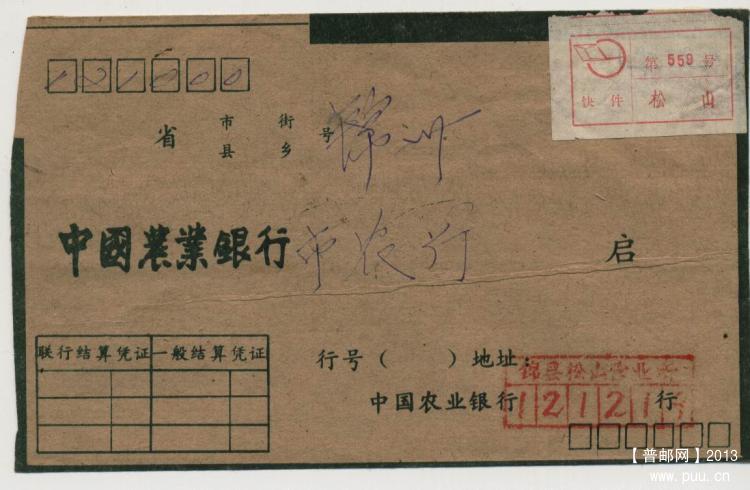 121000
第 559 号
快件 松山
省 市 县 街 乡 号 锦州
中國農業銀行 市农行 启
联行结算凭证 一般结算凭证
行号（ ）地址：
锦县松山营业所
中国农业银行 行
12121
【普邮网】2013
www.puu.cn